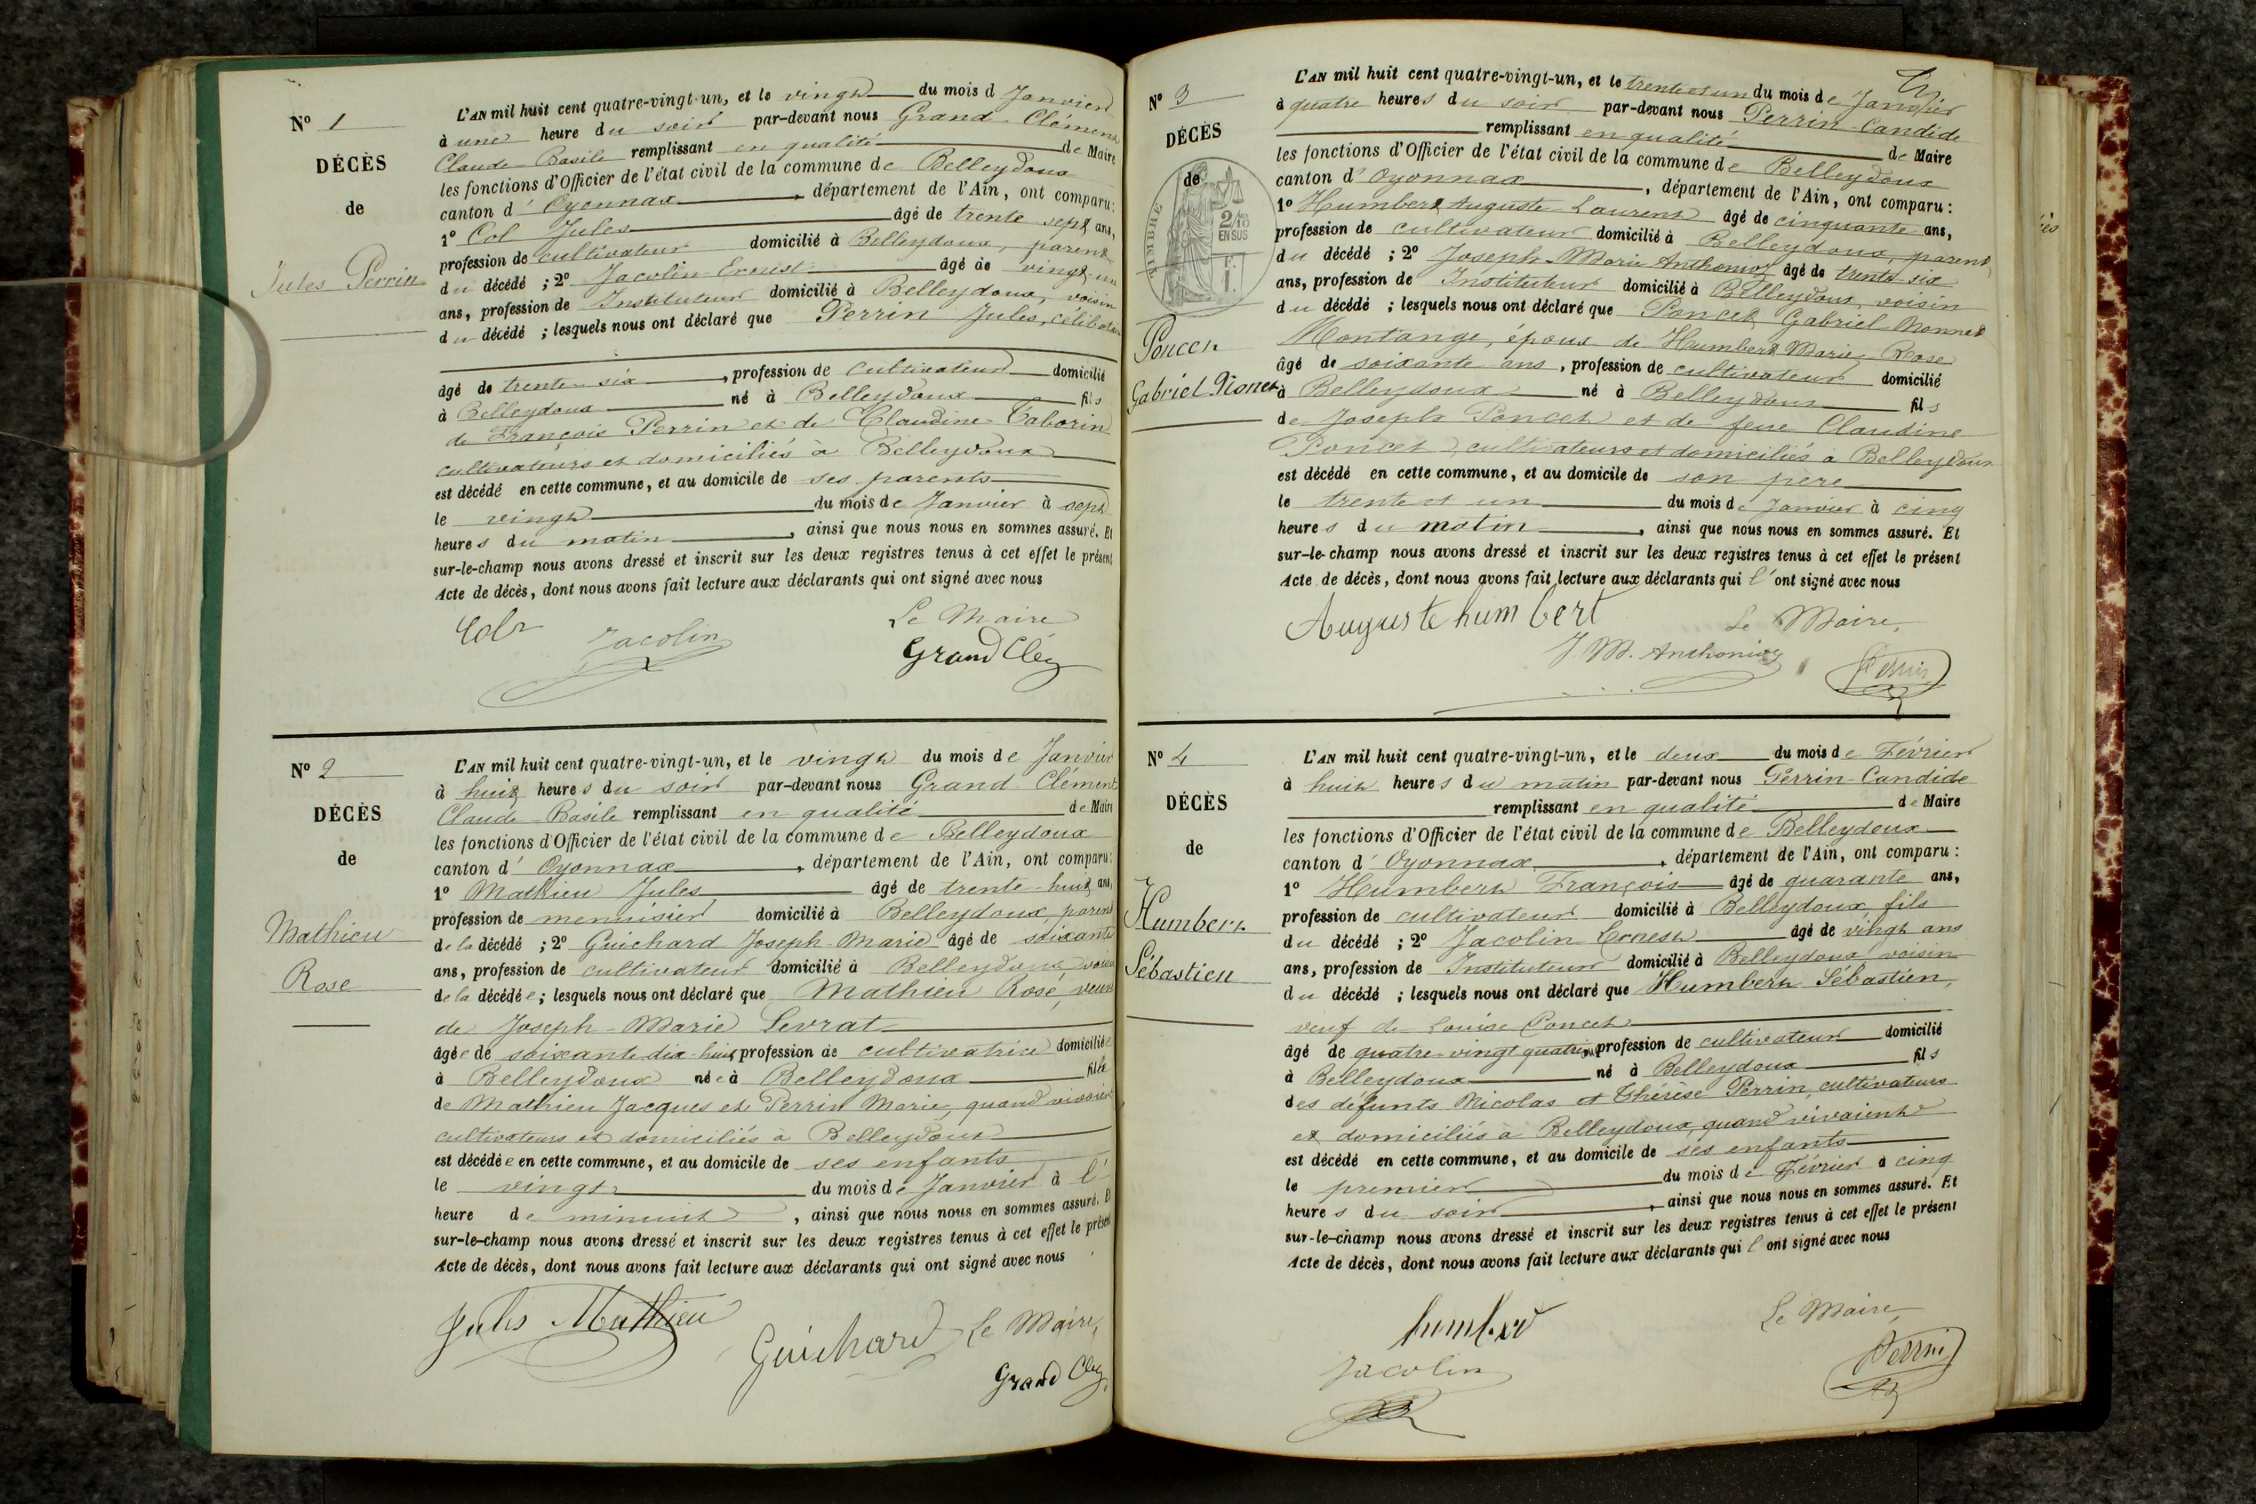 N° 1
DÉCÈS
de
Jules Perrin
L'AN mil huit cent quatre-vingt-un, et le vingt du mois d Janvier
à une heure du soir par-devant nous Grand-Clément
Claude-Basile remplissant en qualité de Maire
les fonctions d'Officier de l'état civil de la commune de Belleydoux
canton d' Oyonnax, département de l'Ain, ont comparu:
1° Col Jules âgé de trente sept ans,
profession de cultivateur domicilié à Belleydoux, parent
du décédé ; 2° Jacolin Ernest âgé de vingt-un
ans, profession de Instituteur domicilié à Belleydoux, voisin
du décédé ; lesquels nous ont déclaré que Perrin Jules, célibataire
âgé de trente-six, profession de cultivateur domicilié
à Belleydoux né à Belleydoux fils
de François Perrin et de Claudine Taborin
cultivateurs et domiciliés à Belleydoux
est décédé en cette commune, et au domicile de ses parents
le vingt du mois de Janvier à sept
heures du matin, ainsi que nous nous en sommes assuré. Et
sur-le-champ nous avons dressé et inscrit sur les deux registres tenus à cet effet le présent
Acte de décès, dont nous avons fait lecture aux déclarants qui ont signé avec nous
Le Maire
Jacolin
Grand Clé
N° 2
DÉCÈS
de
Mathieu
Rose
L'AN mil huit cent quatre-vingt-un, et le vingt du mois de Janvier
à huit heures du soir par-devant nous Grand-Clément
Claude-Basile remplissant en qualité de Maire
les fonctions d'Officier de l'état civil de la commune de Belleydoux
canton d' Oyonnax, département de l'Ain, ont comparu:
1° Mathieu Jules âgé de trente-huit ans,
profession de menuisier domicilié à Belleydoux, parent
de la décédé ; 2° Guichard Joseph-Marie âgé de soixante
ans, profession de cultivateur domicilié à Belleydoux, voisin
de la décédée ; lesquels nous ont déclaré que Mathieu Rose, veuve
de Joseph-Marie Levrat
âgée de soixante dix-huit profession de cultivatrice domiciliée
à Belleydoux née à Belleydoux fille
de Mathieu Jacques et Perrin Marie, quand vivaient
cultivateurs et domiciliés à Belleydoux
est décédée en cette commune, et au domicile de ses enfants
le vingt du mois de Janvier à l'
heure de minuit, ainsi que nous nous en sommes assuré. Et
sur-le-champ nous avons dressé et inscrit sur les deux registres tenus à cet effet le présent
Acte de décès, dont nous avons fait lecture aux déclarants qui ont signé avec nous
Jules Mathieu
Guichard Le Maire,
Grand Clé
N° 3
DÉCÈS
de
TIMBRE
2/10
EN SUS
Poncet
Gabriel Monet
L'AN mil huit cent quatre-vingt-un, et le trente et un du mois de Janvier
à quatre heures du soir par-devant nous Perrin-Candide
remplissant en qualité de Maire
les fonctions d'Officier de l'état civil de la commune de Belleydoux
canton d' Oyonnax, département de l'Ain, ont comparu :
1° Humbert Auguste Laurent âgé de cinquante ans,
profession de cultivateur domicilié à Belleydoux, parent
du décédé ; 2° Joseph-Marie Anthonioz âgé de trente-six
ans, profession de Instituteur domicilié à Belleydoux, voisin
du décédé ; lesquels nous ont déclaré que Poncet Gabriel Monnet
Montange, époux de Humbert Marie-Rose
âgé de soixante ans, profession de cultivateur domicilié
à Belleydoux né à Belleydoux fils
de Joseph Poncet et de feue Claudine
Poncet, cultivateurs et domiciliés à Belleydoux
est décédé en cette commune, et au domicile de son père
le trente et un du mois de Janvier à cinq
heures du matin, ainsi que nous nous en sommes assuré. Et
sur-le-champ nous avons dressé et inscrit sur les deux registres tenus à cet effet le présent
Acte de décès, dont nous avons fait lecture aux déclarants qui l'ont signé avec nous
Auguste humbert
Le Maire,
J. M. Anthonioz
Perrin
N° 4
DÉCÈS
de
Humbert
Sébastien
L'AN mil huit cent quatre-vingt-un, et le deux du mois de Février
à huit heures du matin par-devant nous Perrin-Candide
remplissant en qualité de Maire
les fonctions d'Officier de l'état civil de la commune de Belleydoux
canton d' Oyonnax, département de l'Ain, ont comparu :
1° Humbert François âgé de quarante ans,
profession de cultivateur domicilié à Belleydoux, fils
du décédé ; 2° Jacolin Ernest âgé de vingt ans
ans, profession de Instituteur domicilié à Belleydoux voisin
du décédé ; lesquels nous ont déclaré que Humbert Sébastien,
veuf de Louise Poncet
âgé de quatre-vingt quatre ans profession de cultivateur domicilié
à Belleydoux né à Belleydoux fils
des défunts Nicolas et Thérèse Perrin, cultivateurs
et domiciliés à Belleydoux, quand vivaient
est décédé en cette commune, et au domicile de ses enfants
le premier du mois de Février à cinq
heures du soir, ainsi que nous nous en sommes assuré. Et
sur-le-champ nous avons dressé et inscrit sur les deux registres tenus à cet effet le présent
Acte de décès, dont nous avons fait lecture aux déclarants qui l'ont signé avec nous
humbert
Le Maire,
Jacolin
Perrin